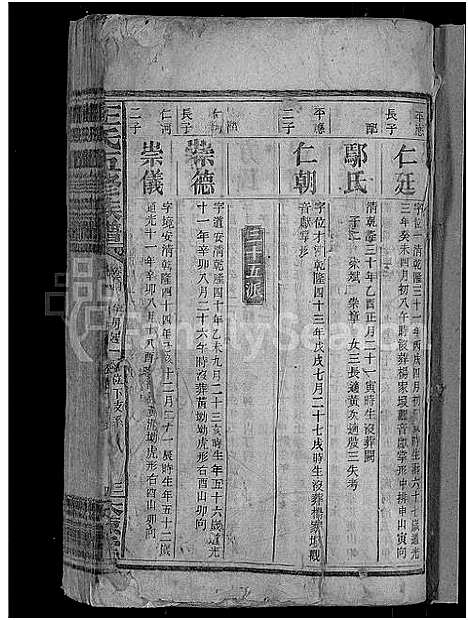 平應
長子
仁廷
字位一清乾隆三十一年丙戌四月初八
時生壽六十七歲道光
三年癸未四月初八午時沒葬楊家垻觀音獻掌形中排申山寅向
配
鄢氏
清乾隆三十年乙酉正月二十一寅時生沒葬闕
子二 崇斌 崇章 女三長適黃次適殷三失考
平應
二子
仁朝
字位才清乾隆四十三年戊戌七月二十七戌時生沒葬楊家垻觀
音獻掌形
三十五派
仁
長子
崇德
字道安清乾隆四十年乙未九月二十三亥時生年五十六歲道光
十一年辛卯八月二十六午時沒葬黃坳坳虎形右酉山卯向
仁河
二子
崇儀
字境安清乾隆四十四年己亥十二月二十一辰時生年五十二歲
道光十一年辛卯八月十八酉
黃坳坳虎形右酉山卯向
王氏五修族譜
位下支系
三
FamilySearch